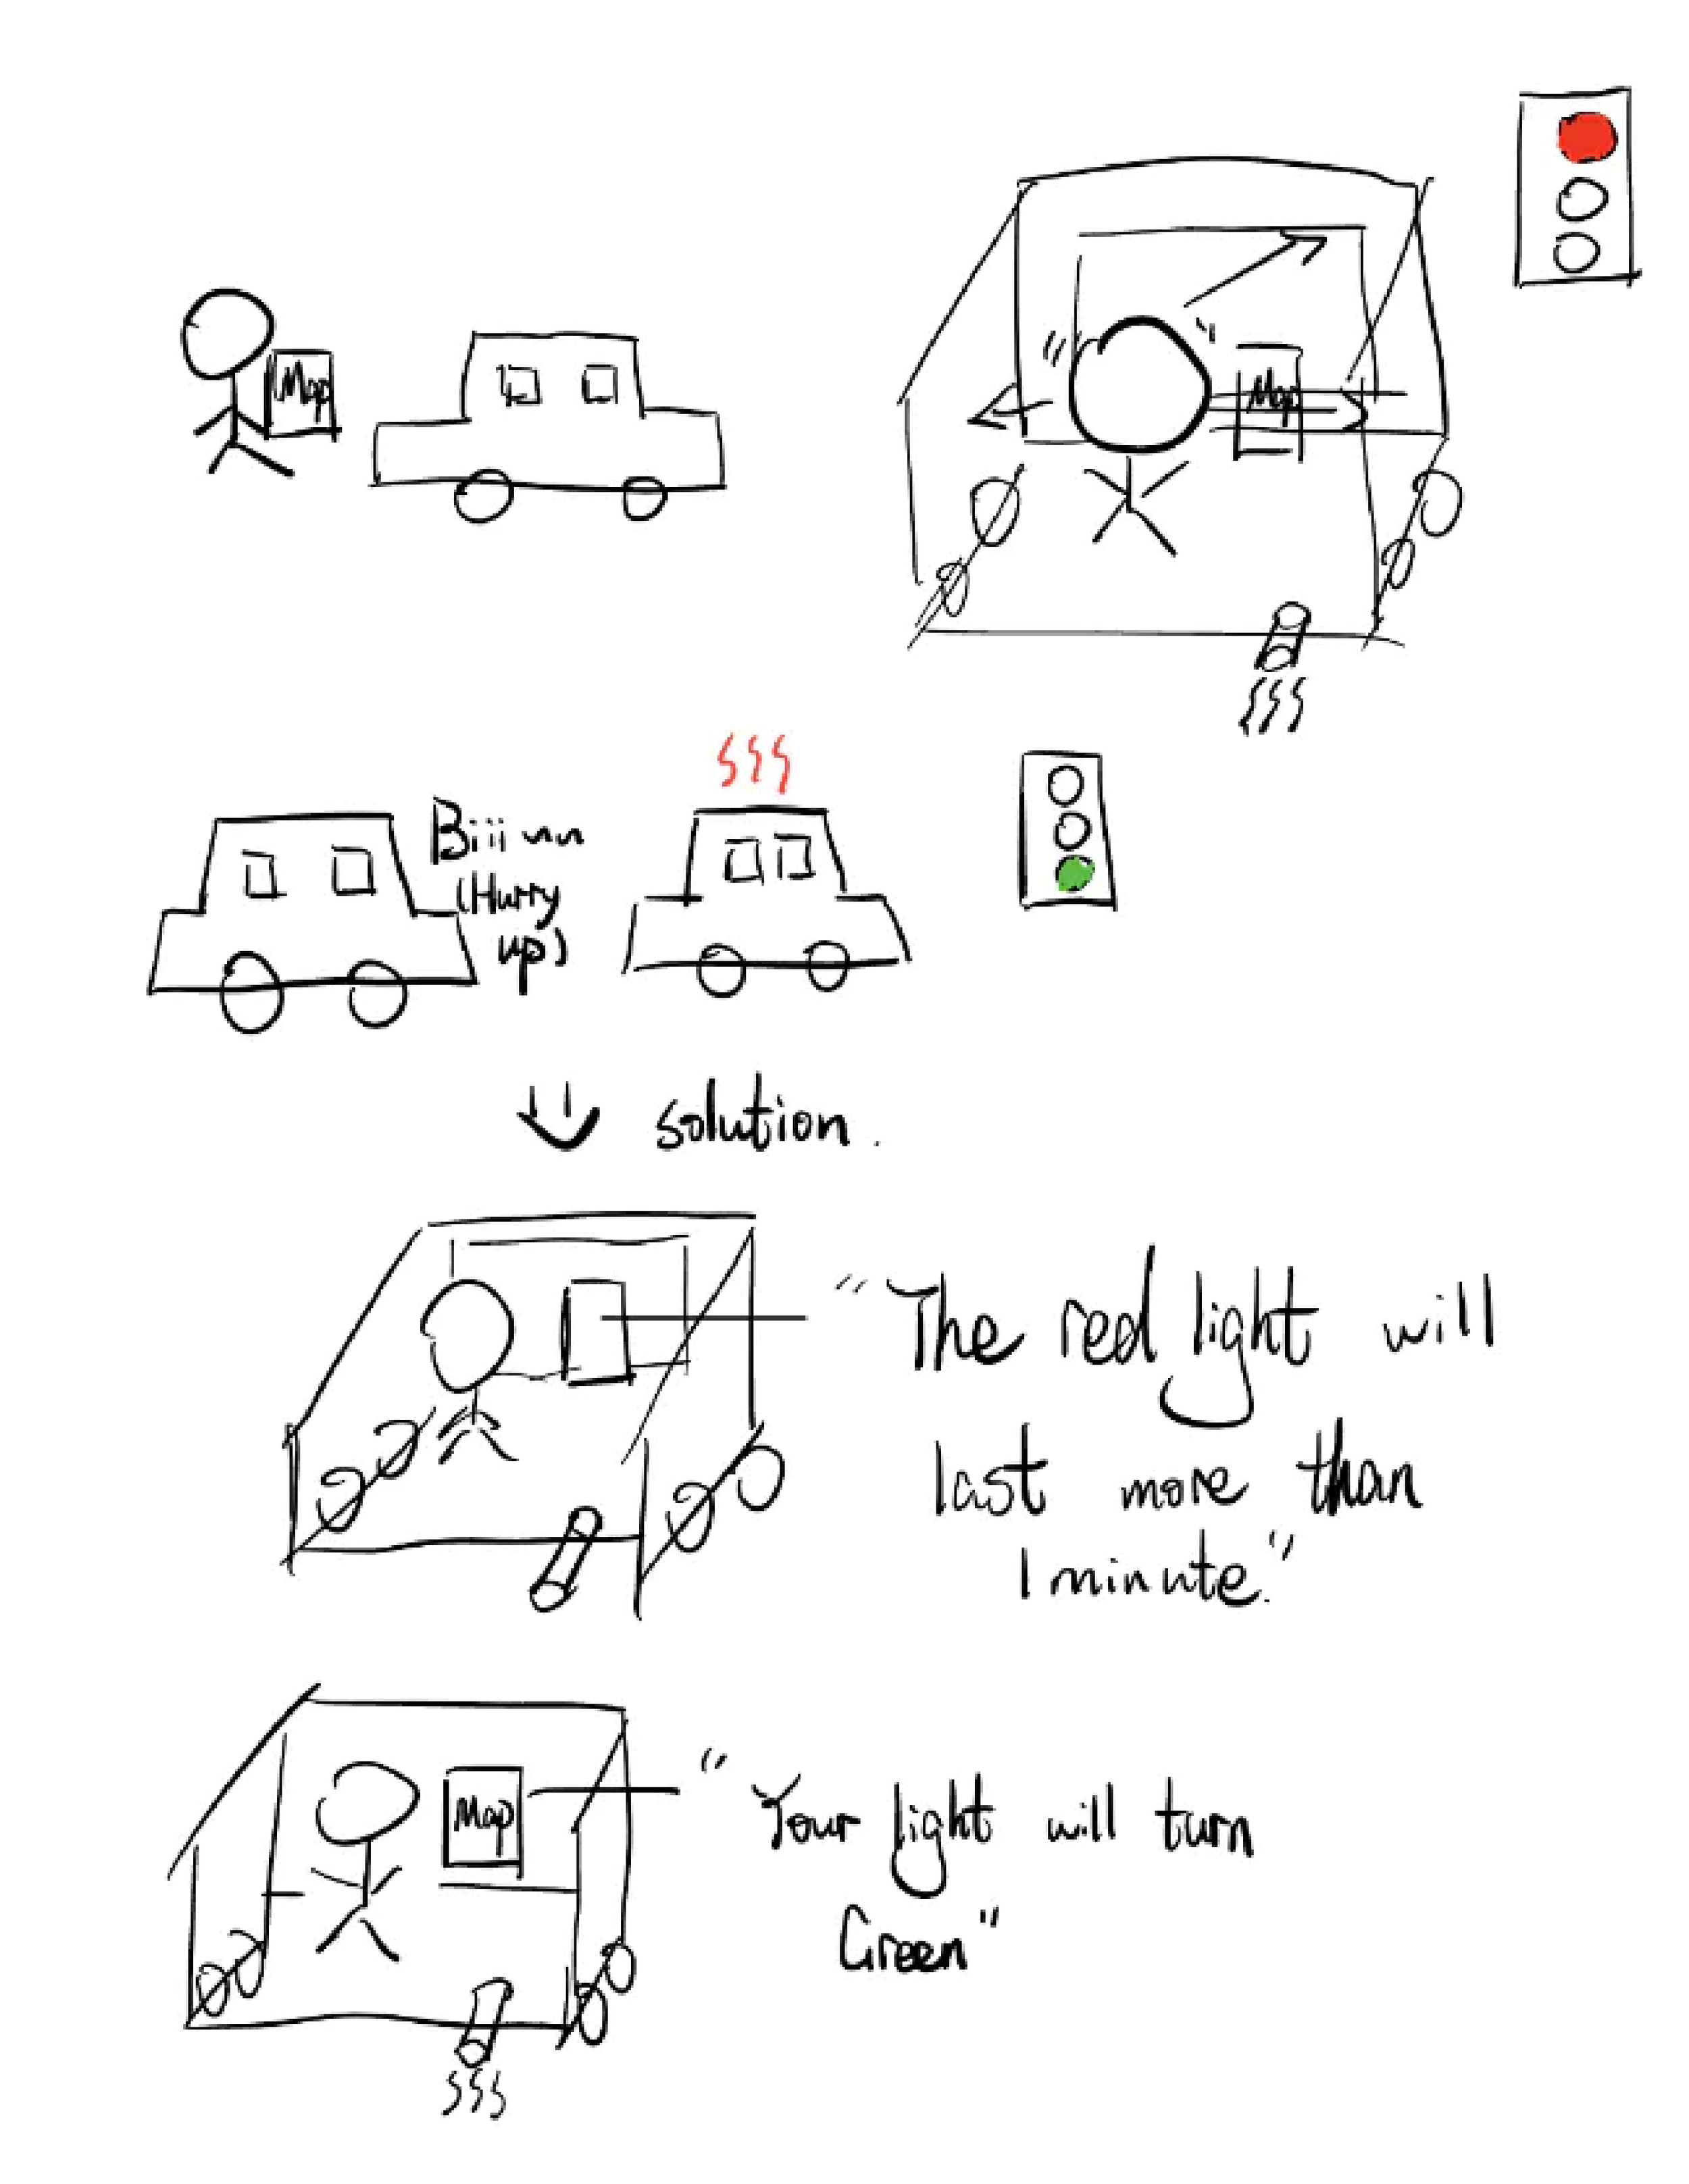 Map
Map
Biii
(Hurry
up)
solution.
"The red light will
last more than
1 minute."
Map
"Your light will turn
Green"